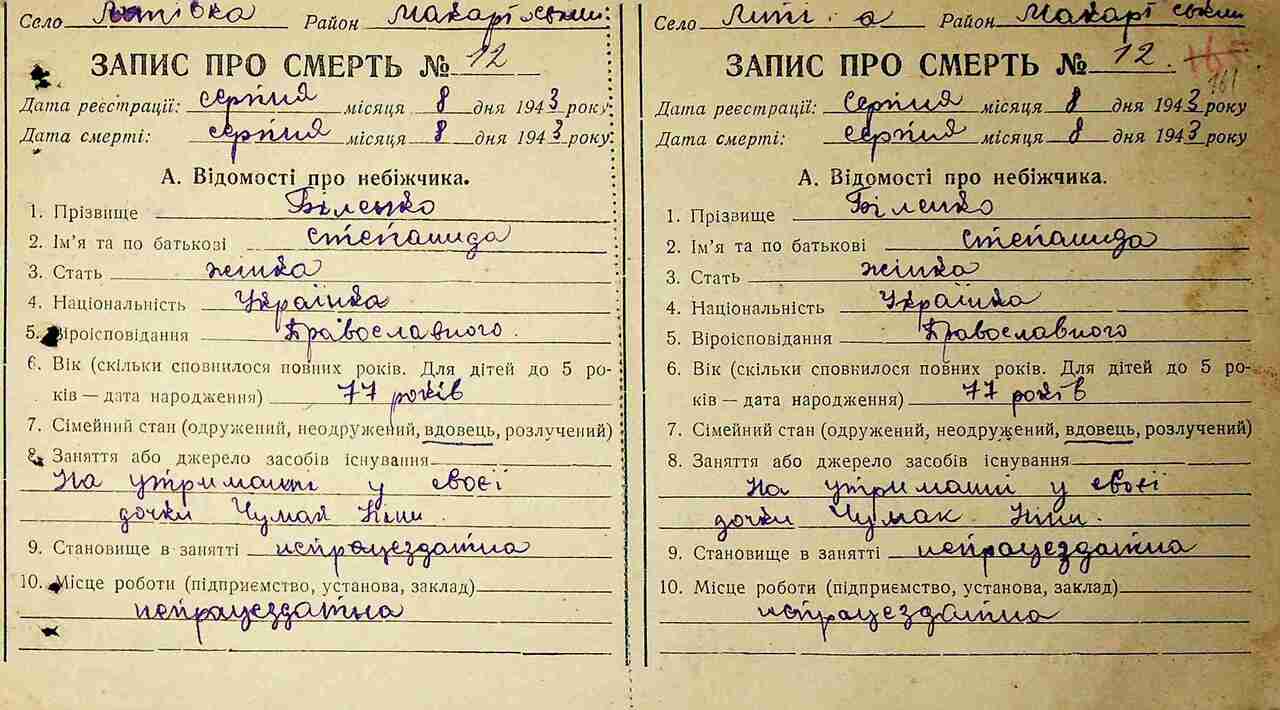 Село Липівка Район Макарівський
ЗАПИС ПРО СМЕРТЬ № 12
Дата реєстрації: серпня місяця 8 дня 1943 року
Дата смерті: серпня місяця 8 дня 1943 року
А. Відомості про небіжчика.
1. Прізвище Біленко
2. Ім'я та по батькові Степанида
3. Стать жінка
4. Національність Українка
5. Віроісповідання Православного
6. Вік (скільки сповнилося повних років. Для дітей до 5 ро-
ків — дата народження) 77 років
7. Сімейний стан (одружений, неодружений, вдовець, розлучений)
8. Заняття або джерело засобів існування
На утриманні у своєї
дочки Чумак Ніни.
9. Становище в занятті непрацездатна
10. Місце роботи (підприємство, установа, заклад)
непрацездатна
Село Липі а Район Макарі ський
ЗАПИС ПРО СМЕРТЬ № 12.
161
Дата реєстрації: Серпня місяця 8 дня 1943 року
Дата смерті: серпня місяця 8 дня 1943 року
А. Відомості про небіжчика.
1. Прізвище Біленко
2. Ім'я та по батькові Степанида
3. Стать жінка
4. Національність Українка
5. Віроісповідання Православного
6. Вік (скільки сповнилося повних років. Для дітей до 5 ро-
ків — дата народження) 77 років
7. Сімейний стан (одружений, неодружений, вдовець, розлучений)
8. Заняття або джерело засобів існування
На утриманні у своєї
дочки Чумак Ніни.
9. Становище в занятті непрацездатна
10. Місце роботи (підприємство, установа, заклад)
непрацездатна